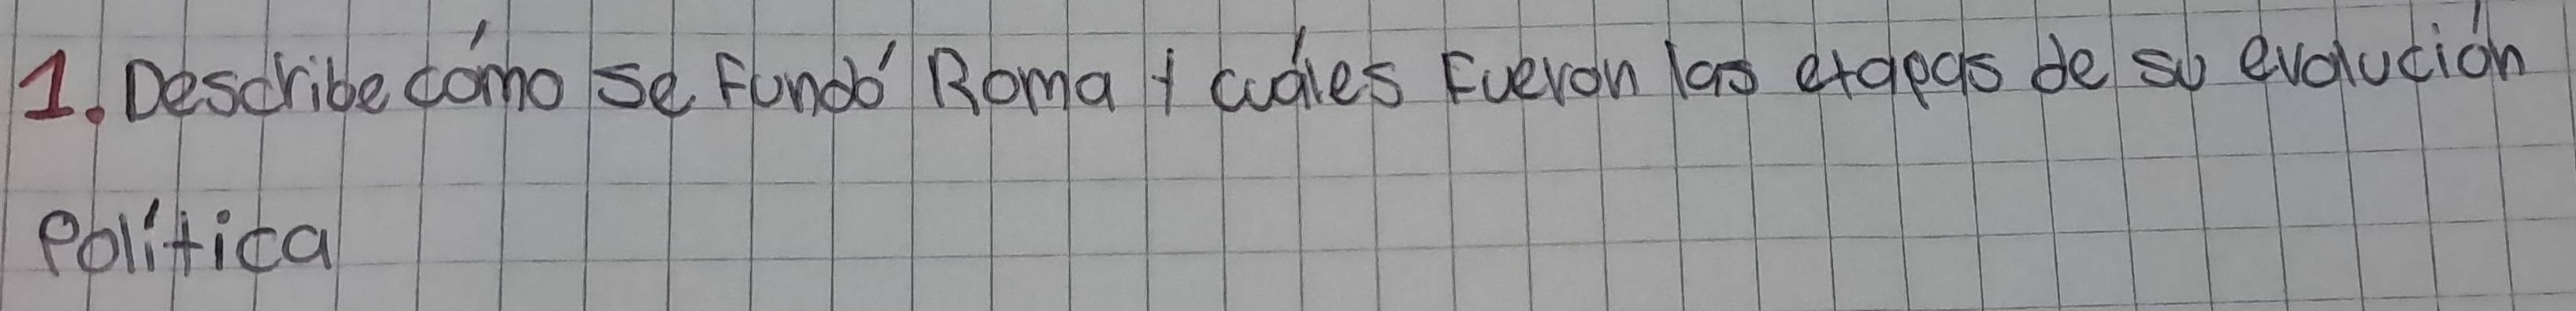 1. Describe cómo se Fundó Roma y cuáles Fueron las etapas de su evolución
Política